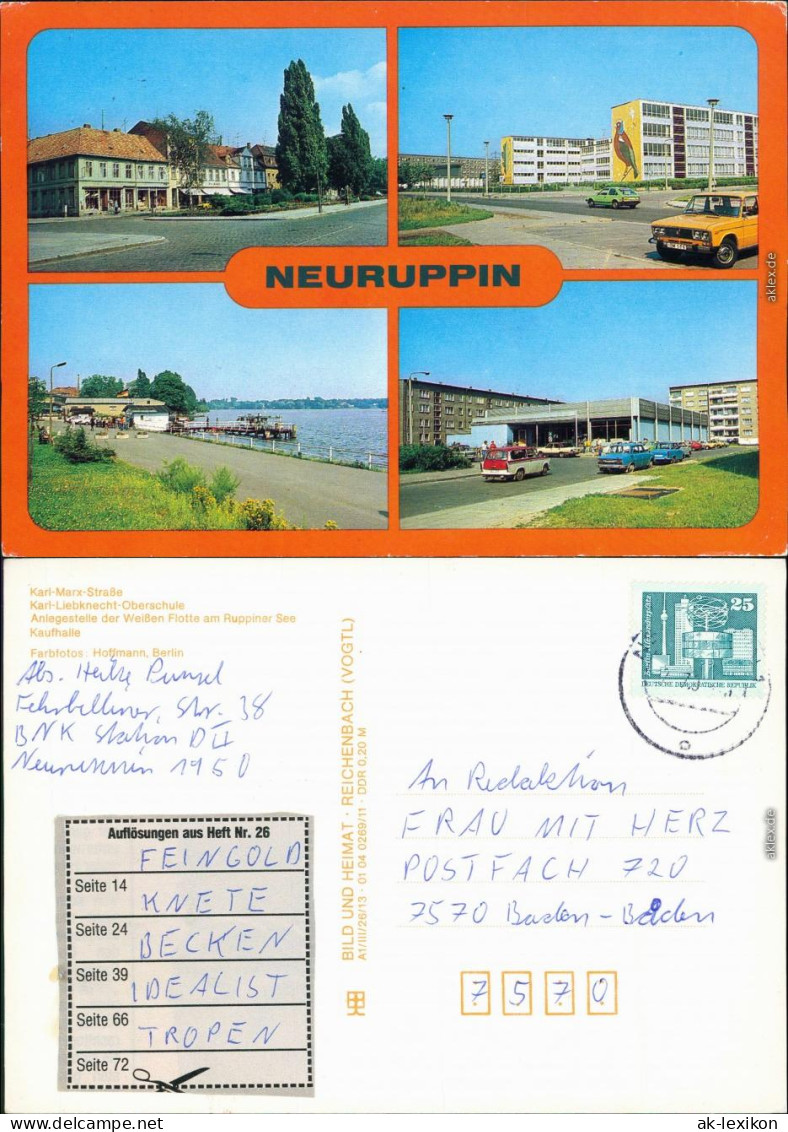 NEURUPPIN
Karl-Marx-Straße
Karl-Liebknecht-Oberschule
Anlegestelle der Weißen Flotte am Ruppiner See
Kaufhalle
Farbfotos: Hoffmann, Berlin
Abs. Heike
Fehrbelliner, Str. 38
BNK Station D II
Neuruppin 1950
Auflösungen aus Heft Nr. 26
FEINGOLD
Seite 14
KNETE
Seite 24
BECKEN
Seite 39
IDEALIST
Seite 66
TROPEN
Seite 72
BILD UND HEIMAT · REICHENBACH (VOGTL)
A1/III/26/13 · 01 04 0269/11 · DDR 0,20 M
25
Berlin, Alexanderplatz
DEUTSCHE DEMOKRATISCHE REPUBLIK
An Redaktion
FRAU MIT HERZ
POSTFACH 720
7570 Baden-Baden
7570
aklex.de
aklex.de
ak-lexikon